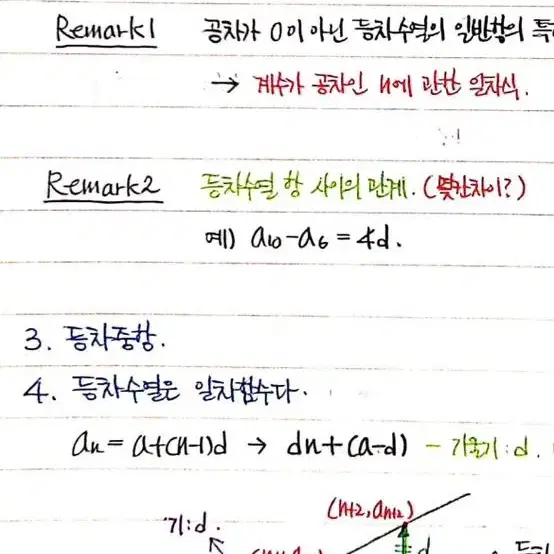 Remark1 공차가 0이 아닌 등차수열의 일반항의
→ 계수가 공차인 n에 관한 일차식.
Remark2 등차수열 항 사이의 관계. (몇칸차이?)
예) a₁₀-a₆ = 4d.
3. 등차중항.
4. 등차수열은 일차함수다.
aₙ = a+(n-1)d → dn+(a-d) - 기울기 : d.
(n+2, aₙ₊₂)
기:d.
d